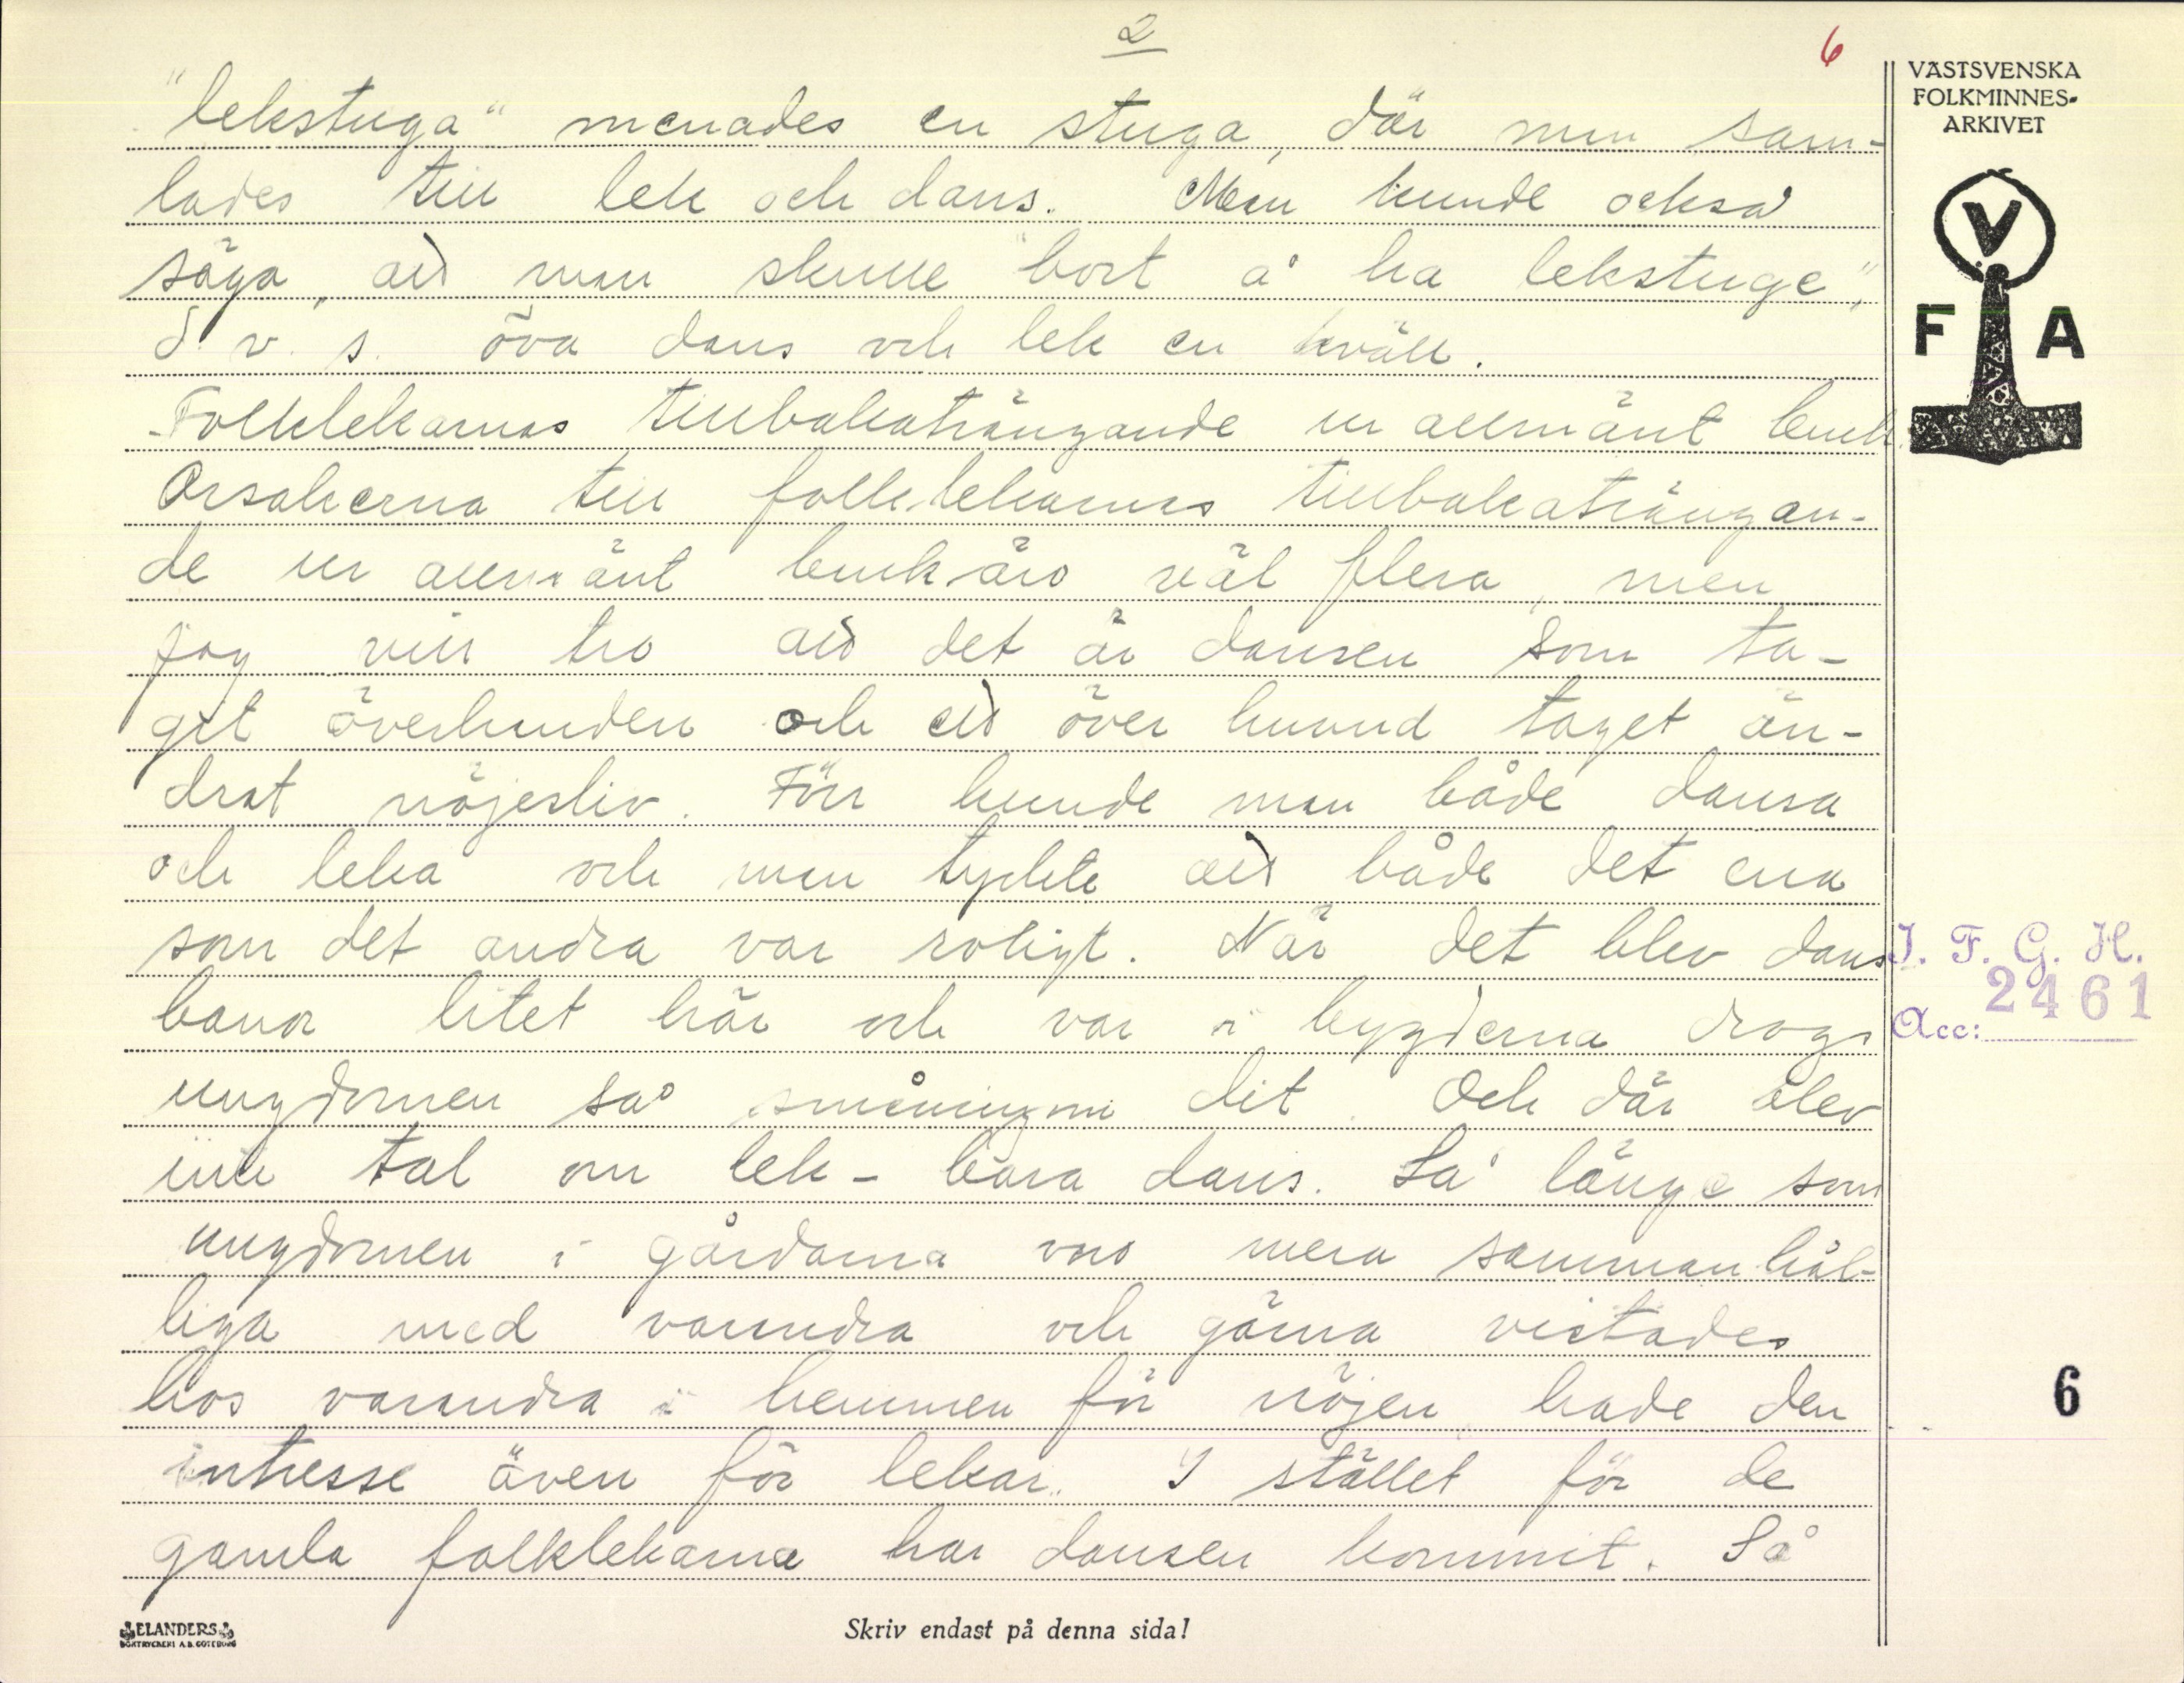 2
6
VÄSTSVENSKA
FOLKMINNES-
ARKIVET
V
F A
"lekstuga" menades en stuga, där mn sam-
lades till lek och dans. Man kunde också
säga, att man skulle "bort å ha lekstuge",
d. v. s. öva dans och lek en kväll.
Folklekarnas tillbakaträngande ur allmänt bruk.
Orsakerna till folklekarnas tillbakaträngan-
de ur allmänt bruk äro väl flera, men
jag vill tro att det är dansen som ta-
git överhanden och ett över huvud taget än-
drat nöjesliv. Förr kunde man både dansa
och leka och man tyckte att både det ena
som det andra var roligt. När det blev dans
banor litet här och var i bygderna drogs
ungdomen så småningom dit. Och där blev
inte tal om lek - bara dans. Så länge som
ungdomen i gårdarna voro mera sammanhål-
liga med varandra och gärna vistades
hos varandra i hemmen för nöjen, hade den
intresse även för lekar. I stället för de
gamla folklekarna har dansen kommit. Så
I. F. G. H.
Acc: 2461
6
ELANDERS
BOKTRYCKERI A.B. GÖTEBORG
Skriv endast på denna sida!